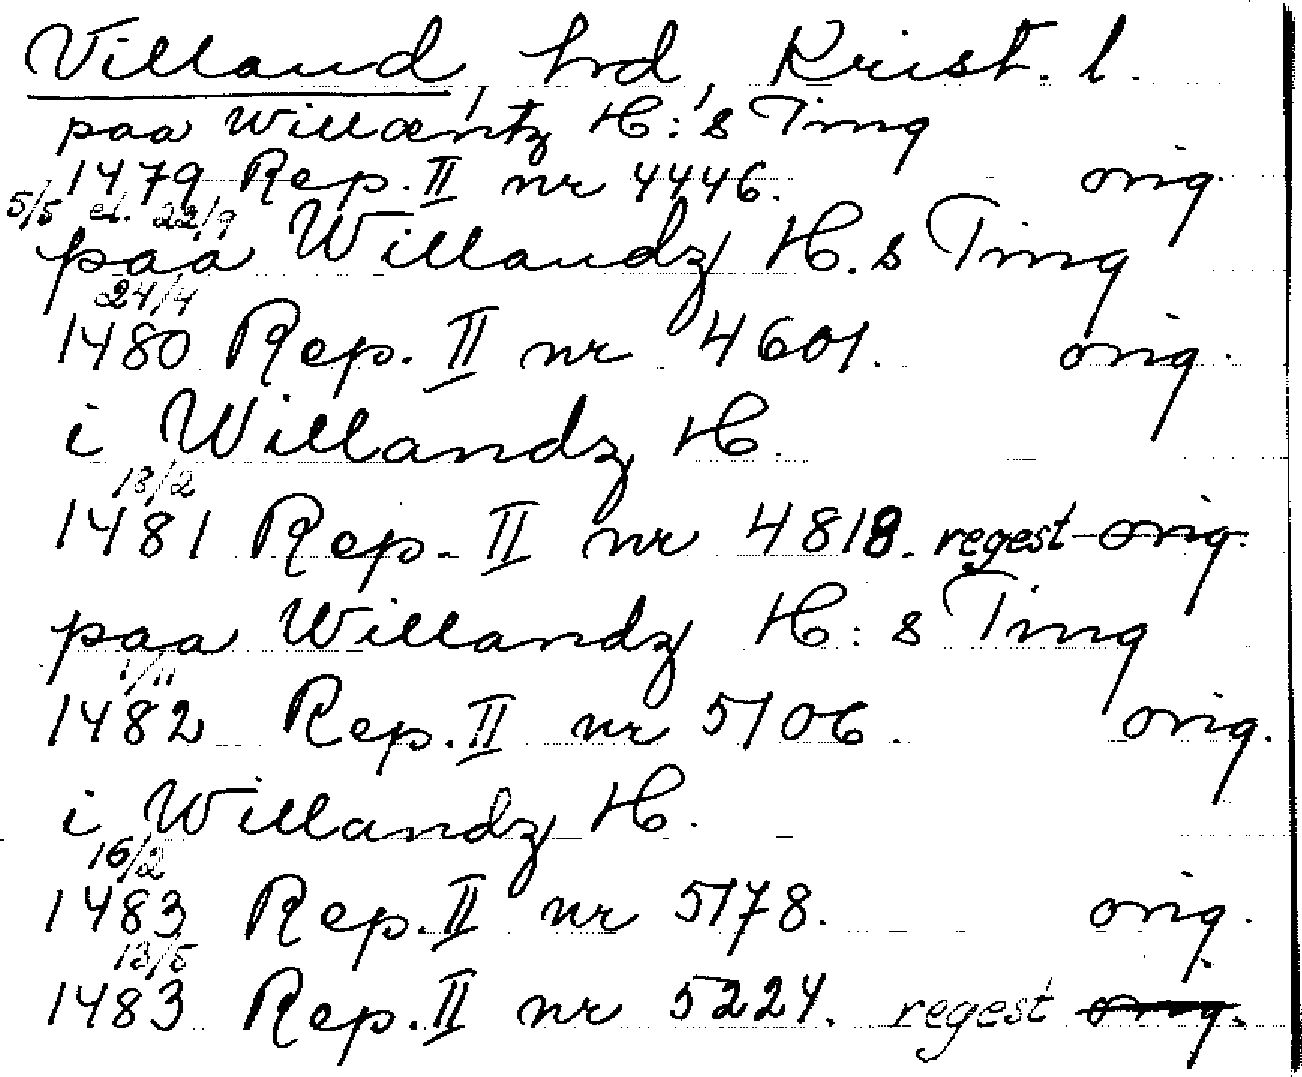 Villand, hrd, Krist. l.
paa Willæntz H:s Ting
1479 Rep. II nr 4446. orig.
5/5 el. 22/9
paa Willandz H.s Ting
24/4
1480 Rep. II nr 4601. orig.
i Willandz H.
13/2
1481 Rep. II nr 4818. regest orig.
paa Willandz H:s Ting
1/11
1482 Rep. II nr 5106. orig.
i Willandz H.
16/2
1483 Rep. II nr 5178. orig.
13/5
1483 Rep. II nr 5224. regest orig.